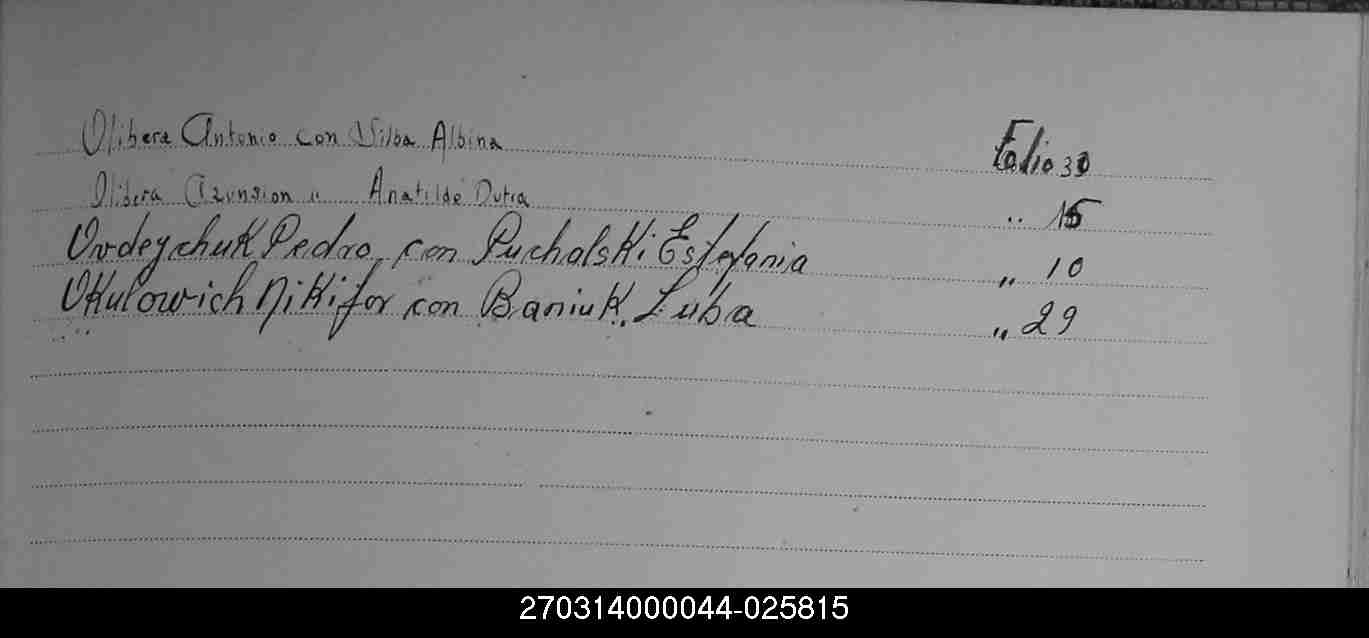 Olibera Antonio con Silba Albina Folio 30
Olibera Azunsion " Anatilde Dutra " 15
Ovdeychuk Pedro con Puchalski Estefania " 10
Okulowich Nikifor con Baniuk Luba " 29
270314000044-025815